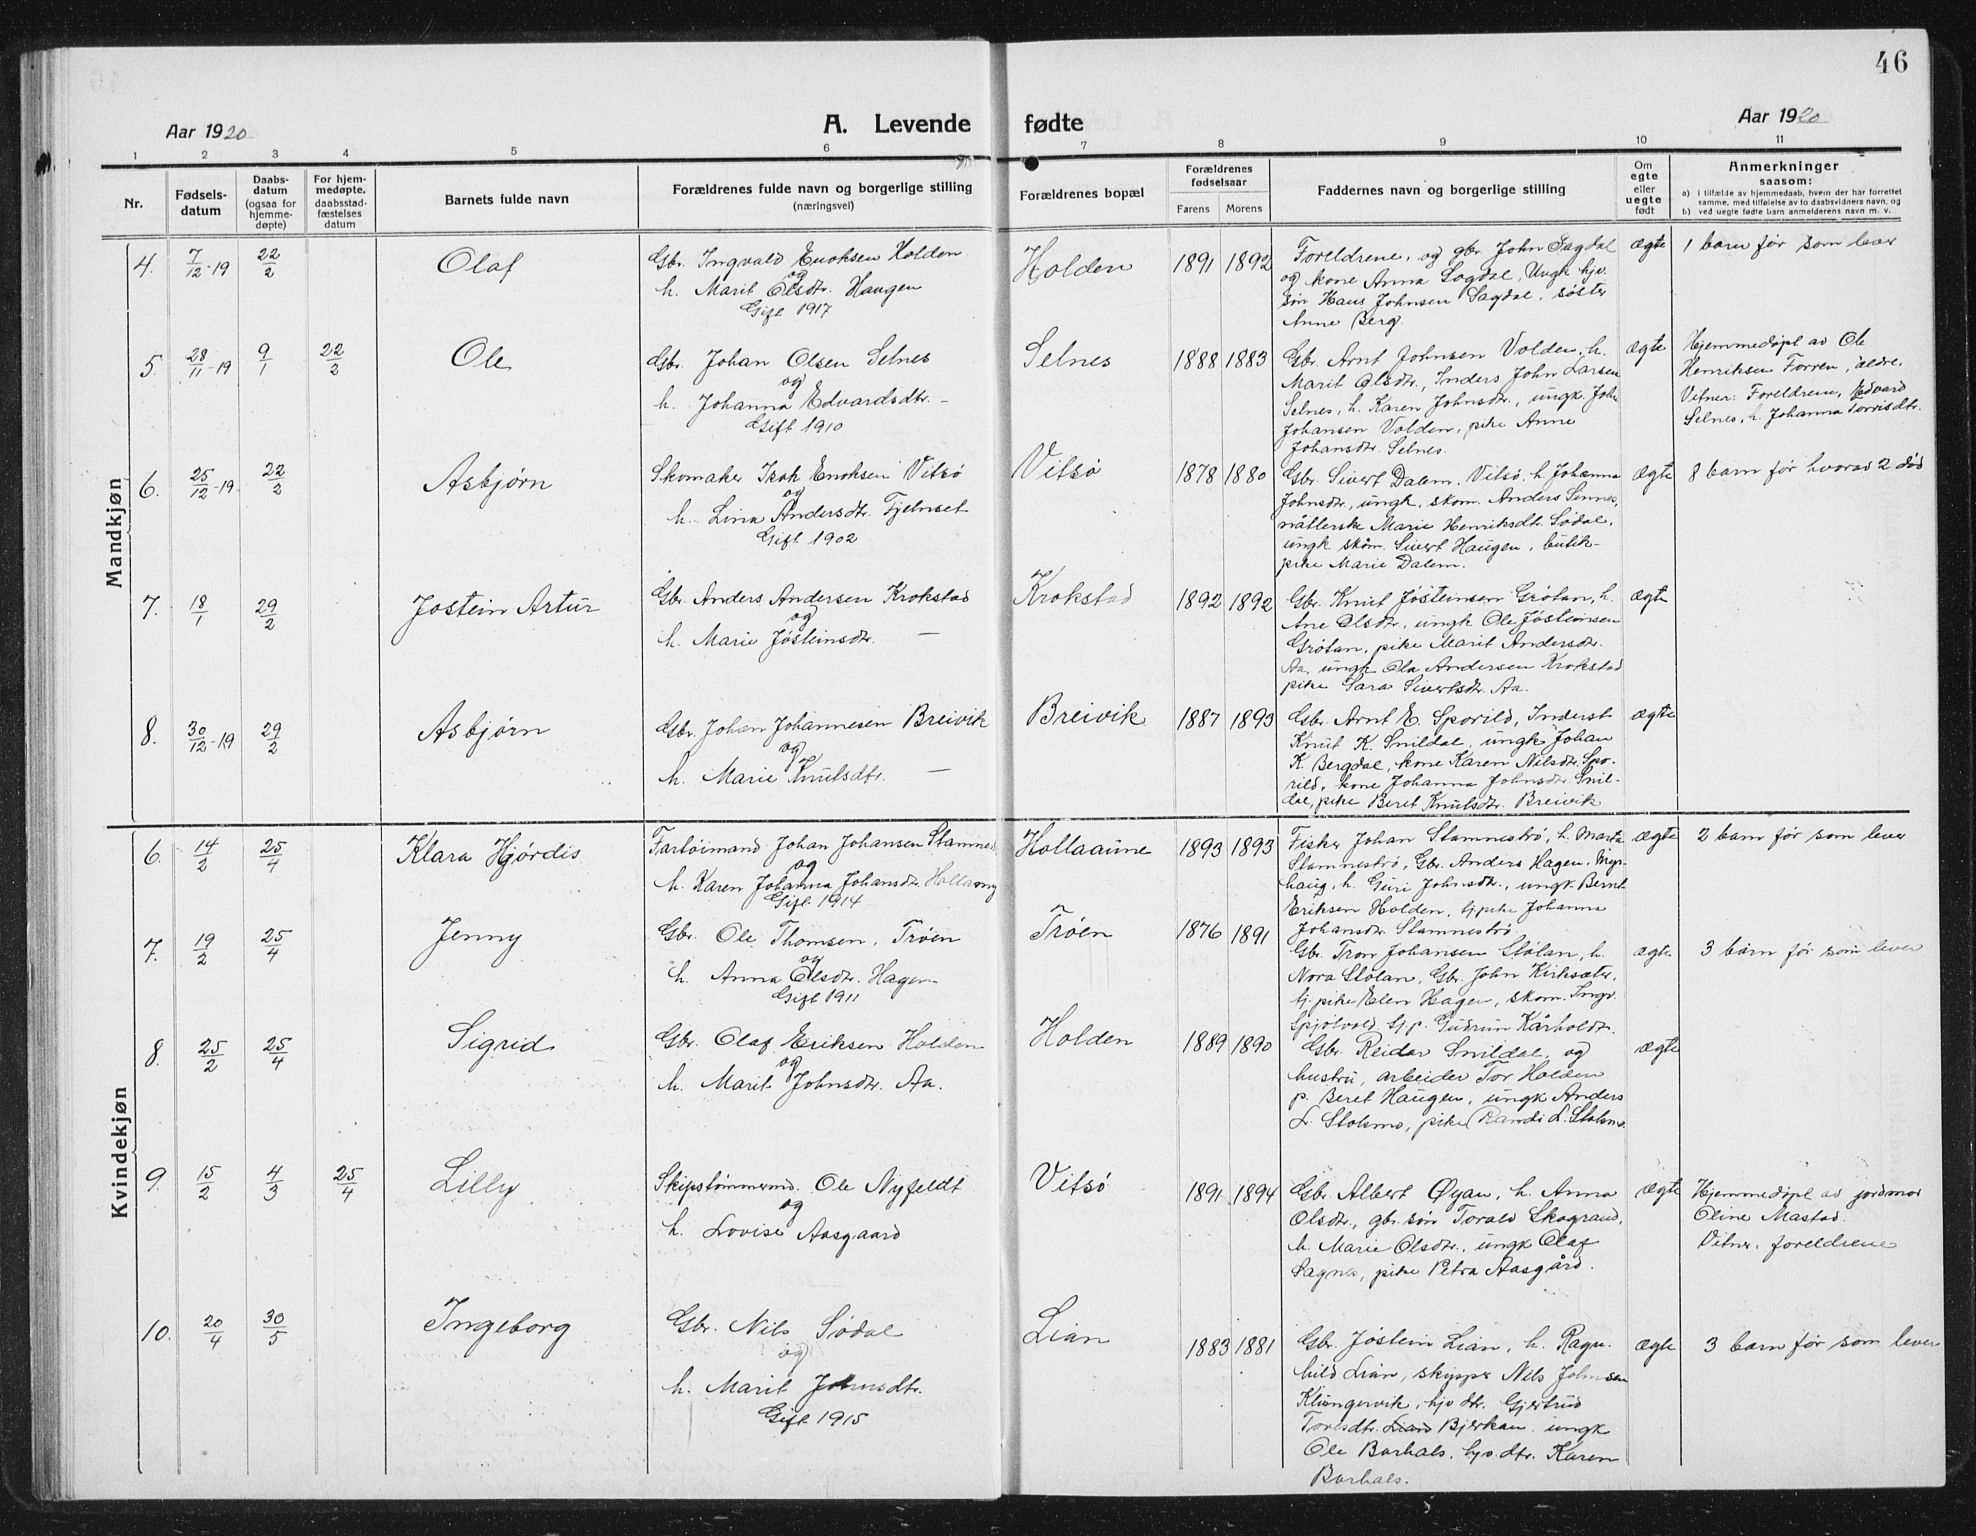 46
Aar 1920
A. Levende fødte
Aar 1920
1 2 3 4 5 6 7 8 9 10 11
Nr.
Fødsels-
datum
Daabs-
datum
(ogsaa for
hjemme-
døpte)
For hjem-
medøpte,
daabsstad-
fæstelses
datum
Barnets fulde navn
Forældrenes fulde navn og borgerlige stilling
(næringsvei)
Forældrenes bopæl
Forældrenes
fødselsaar
Farens Morens
Faddernes navn og borgerlige stilling
Om
egte
eller
uegte
født
Anmerkninger
saasom:
a) i tilfælde av hjemmedaab, hvem der har forrettet
samme, med tilføielse av to daabsvidners navn, og
b) ved uegte fødte barn anmelderens navn m. v.
Mandkjøn
4. 7/12-19 22/2
Olaf
Gbr. Ingvald Enoksen Holden
og
h. Marit Olsdtr. Haugen
Gift 1917
Holden
1891 1892
Foreldrene, og gbr John Sagdal
og kone Anna Sagdal, Ungk. hjv.
søn Hans Johnsen Sagdal, søster
Anne Berg.
ægte
1 barn før som lever
5. 28/11-19 9/1 22/2
Ole
Gbr. Johan Olsen Selnes
og
h. Johanna Edvardsdtr. –
Gift 1910
Selnes
1888 1883
Gbr. Arnt Johnsen Volden, h.
Marit Olsdtr., Inders John Larsen
Selnes, h. Karen Johnsdtr., ungk. John
Johansen Volden, pike Anne
Johansdtr. Selnes.
ægte
Hjemmedøpt av Ole
Henriksen Forren, ældre.
Vitner: Foreldrene, Edvard
Selnes, h. Johanna Torrisdtr.
6. 25/12-19 22/2
Asbjørn
Skomaker Isak Enoksen Vitsø
og
h. Lina Andersdtr. Fjelnset
Gift 1902
Vitsø
1878 1880
Gbr. Sivert Dalem, Vitsø, h. Johanna
Johnsdtr., ungk. skom. Anders Sinnes,
måtterske Marie Henriksdtr. Sødal,
ungk skom. Sivert Haugen, butik-
pike Marie Dalem.
ægte
8 barn før hvorav 2 død
7. 18/1 29/2
Jostein Artur
Gbr. Anders Andersen Krokstad
og
h. Marie Jøsteinsdtr. –
Krokstad
1892 1892
Gbr. Knut Jøsteinsen Grøtan, h.
Ane Olsdtr., ungk Ole Jøsteinsen
Grøtan, pike Marit Andersdtr.
Aa, ungk Ola Andersen Krokstad
pike Sara Sivertsdtr. Aa.
ægte
8. 30/12-19 29/2
Asbjørn
Gbr. Johan Johannesen Breivik
og
h. Marie Knutsdtr. –
Breivik
1887 1893
Gbr. Arnt E. Sporild, Inderst
Knut K. Snildal, ungk Johan
K. Bergdal, kone Karen Nilsdtr. Spo-
rild, kone Johanna Johnsdtr. Snil-
dal, pike Beret Knutsdtr. Breivik
ægte
Kvindekjøn
6. 14/2 25/4
Klara Hjørdis
Fartøimand Johan Johansen Stamnes
og
h. Karen Johanna Johansdtr. Hollaung
Gift 1914
Hollaaune
1893 1893
Fisker Johan Stamnestrø, h. Marta
Stamnestrø, Gbr. Anders Hagen, Myr-
haug, h. Guri Johnsdtr., ungk. Bernt
Eriksen Holden, tj.pike Johanna
Johansdtr. Stamnestrø.
ægte
2 barn før som lever
7. 19/2 25/4
Jenny
Gbr. Ole Thomsen, Trøen
og
h. Anna Olsdtr. Hagen
Gift 1911
Trøen
1876 1891
Gbr. Tron Johansen Stølan, h.
Nora Stølan, Gbr. John Kirksæter,
tj.pike Elen Hagen, skom. Ingv.
Spjøtvold, tj.p. Gudrun Kårholdt.
ægte.
3 barn før som lever
8. 25/2 25/4
Sigrid
Gbr. Olaf Eriksen Holden
og
h. Marit Johnsdtr. Aa.
Holden
1889 1890
Gbr. Reidar Snildal, og
hustru, arbeider Tor Holden
p. Beret Haugen, ungk Anders
L. Stolsmo, pike Randi L. Stolsmo.
ægte
9. 15/2 4/3 25/4
Lilly
Skipstømmermd. Ole Nyfeldt
og
h. Lovise Aasgaard
Vitsø
1891 1894
Gbr. Albert Øyan, h. Anna
Olsdtr., gbr.søn Torald Skogrand,
h. Marie Olsdtr., ungk Olaf
Sagnes, pike Petra Aasgård.
ægte
Hjemmedøpt av jordmor
Oline Mastad.
Vitner: foreldrene
10. 20/4 30/5
Ingeborg
Gbr. Nils Sødal
og
h. Marit Johnsdtr.
Gift 1915
Lian
1883 1881
Gbr. Jøstein Lian, h. Ragn-
hild Lian, skipper Nils Johnsen
Klungervik, hjv. dtr. Gjertrud
Toresdtr. Lian Bjerkan, ungk
Ole Barhals, hjv. dtr. Karen
Barhals.
ægte
3 barn før som lever